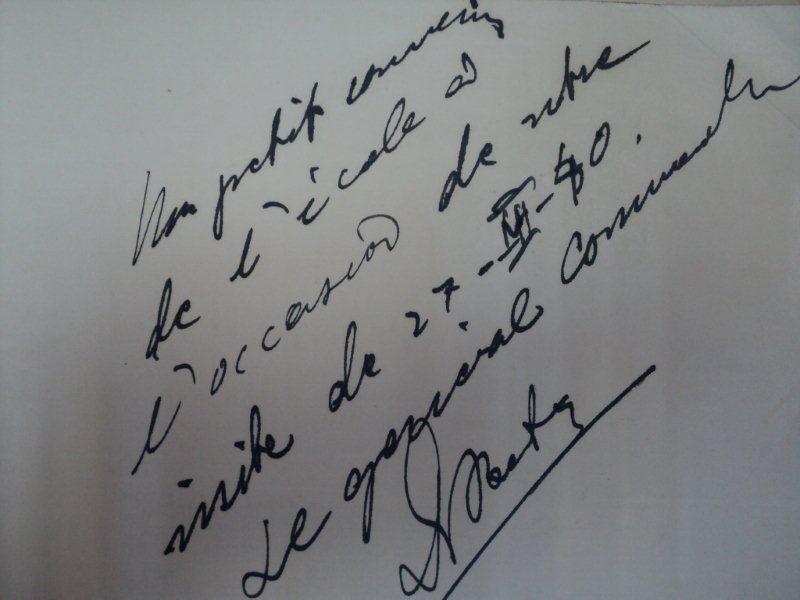 Un petit souvenir
de l'école à
l'occasion de votre
visite de 27-VI-40.
Le général Commandant